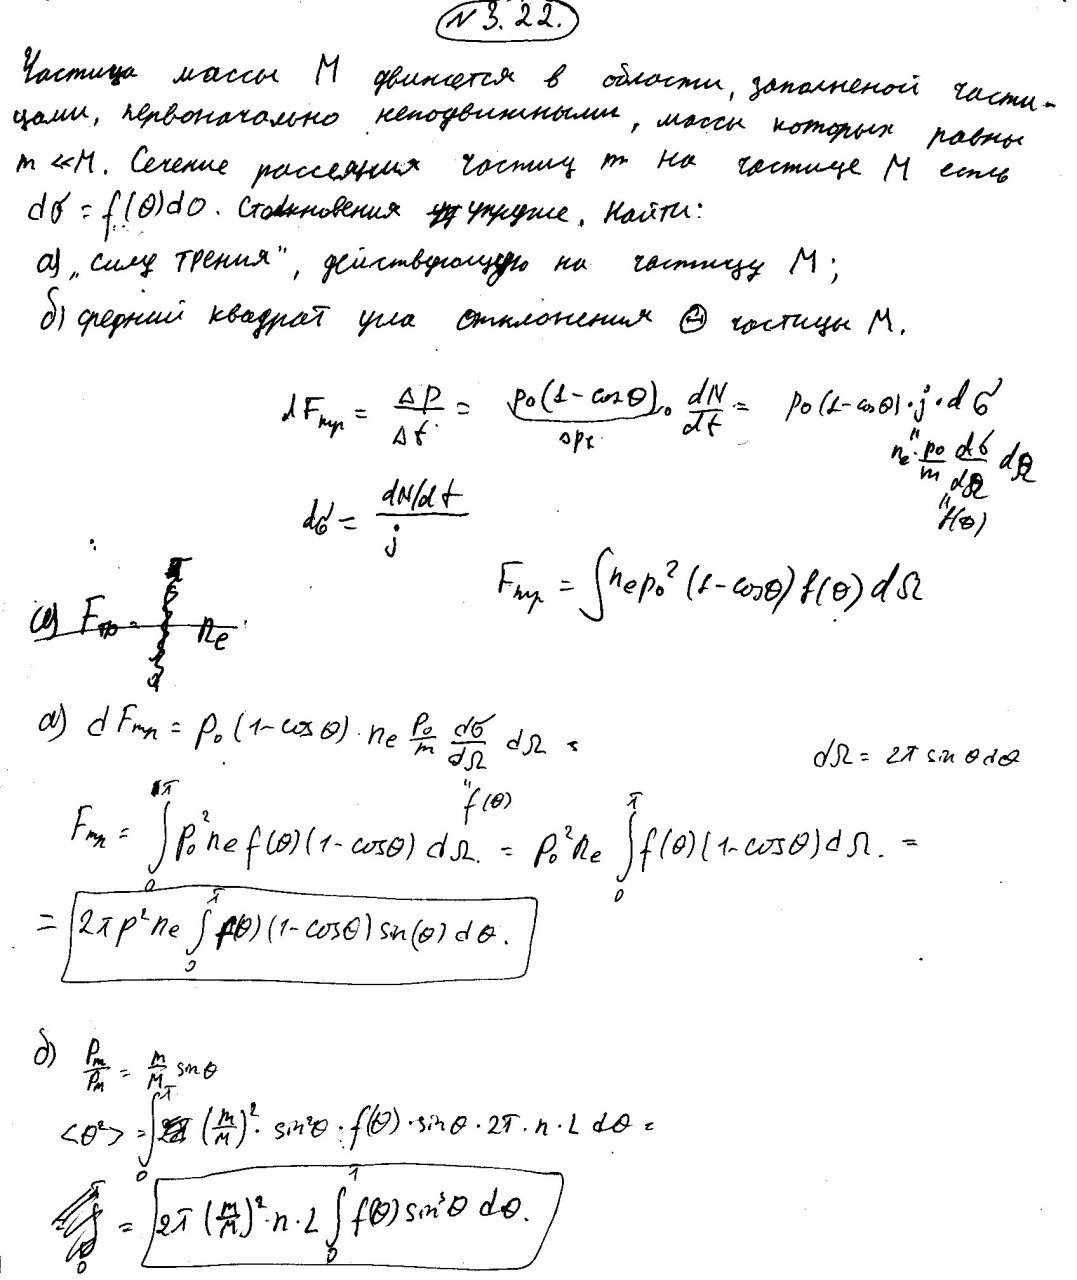 N 3.22.
Частица массы M движется в области, заполненой части-
цами, первоначально неподвижными, массы которых равны
m ≪ M. Сечение рассеяния частиц m на частице M есть
dσ = f(θ)do. Столкновения упругие. Найти:
а) „силу трения", действующую на частицу M;
б) средний квадрат угла отклонения Θ частицы M.
dFтр = Δp/Δt = p₀(1-cosθ) · dN/dt = p₀(1-cosθ)·j·dσ
Δpx
nₑ·p₀/m dσ/dΩ dΩ
f(θ)
dσ = (dN/dt)/j
Fтр = ∫nₑp₀²(1-cosθ)f(θ)dΩ
nₑ
а) dFтр = p₀(1-cosθ)·nₑ p₀/m dσ/dΩ dΩ =
dΩ = 2π sinθdθ
f(θ)
Fтр = ∫₀^π p₀²nₑf(θ)(1-cosθ)dΩ. = p₀²nₑ ∫₀^π f(θ)(1-cosθ)dΩ. =
= 2πp²nₑ ∫₀^π f(θ)(1-cosθ)sin(θ)dθ.
б) Pm/Pm = m/M sinθ
<θ²> = ∫₀^π (m/M)²· sin²θ · f(θ)·sinθ·2π·n·L dθ =
= 2π(m/M)²·n·L ∫₀^π f(θ)sin³θ dθ.